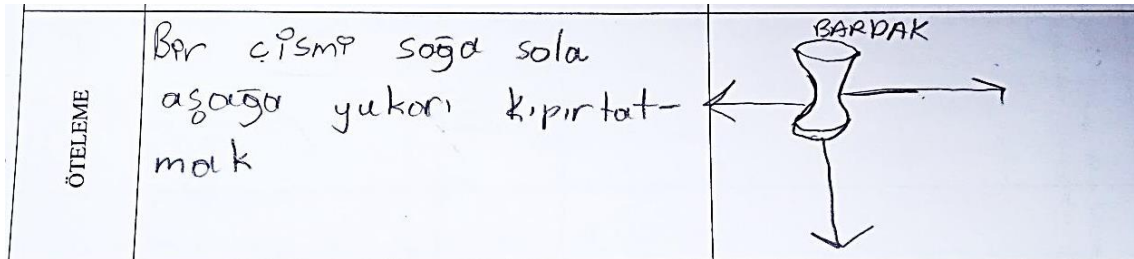 ÖTELEME
Bir çismi soğa sola
aşağa yukarı kıpırtat-
mak
BARDAK